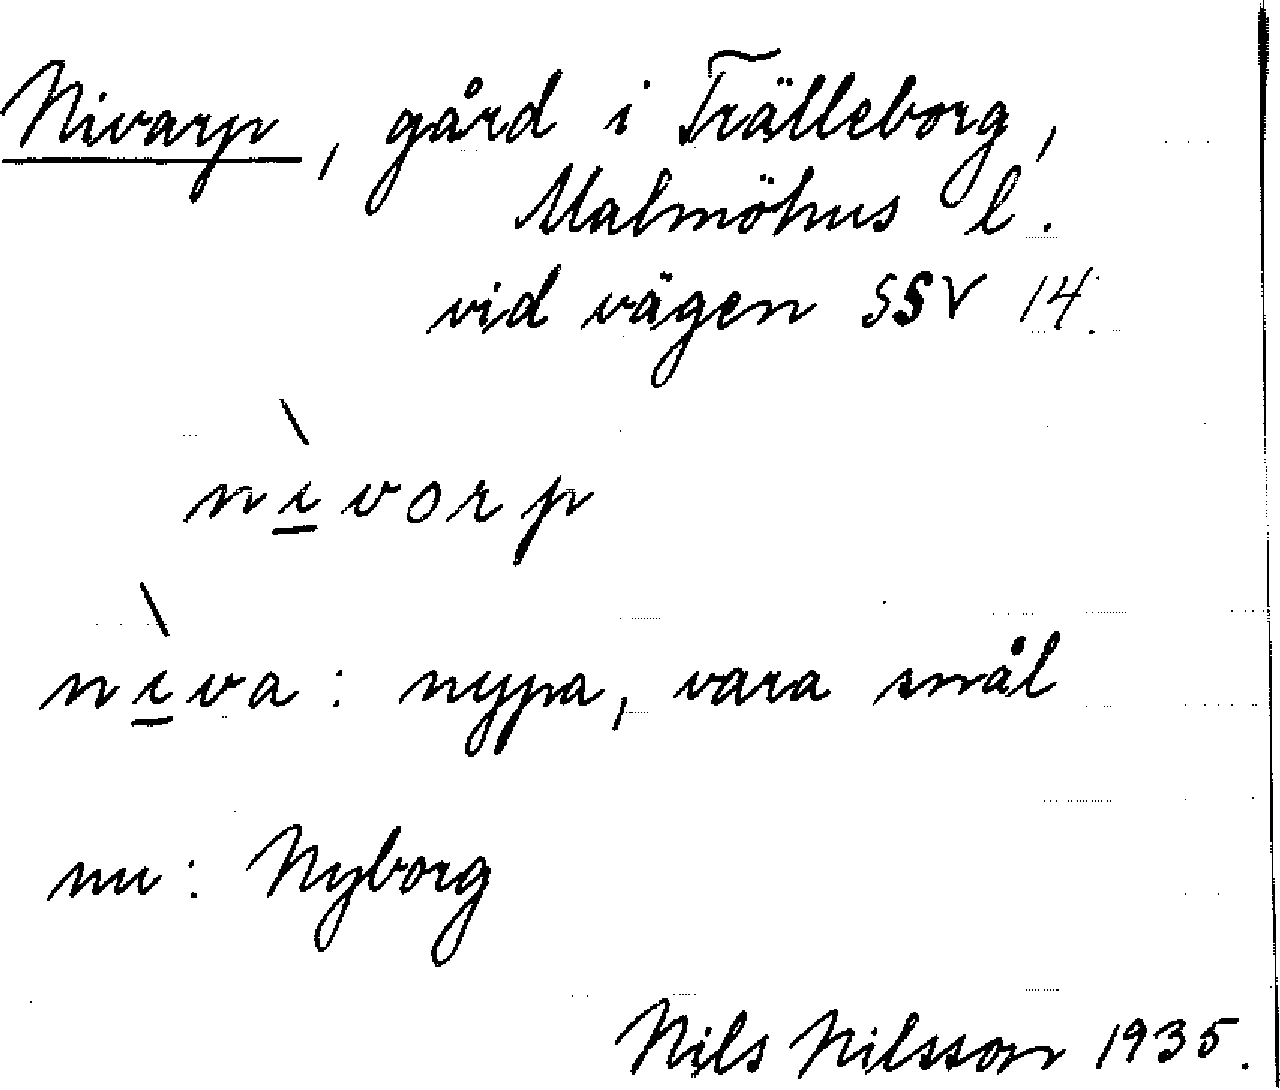 Nivarp, gård i Trälleborg,
Malmöhus l.
vid vägen SSV 14.
nìvorp
nìva: nypa, vara snål
nu: Nyborg
Nils Nilsson 1935.